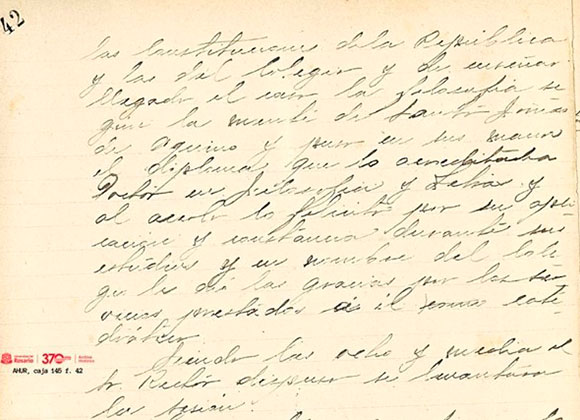 42
las Constituciones de la República
y las del Colegio y de enseñar
llegado el caso la filosofía se
gún la mente de Santo Tomás
de Aquino y puso en sus manos
el diploma que lo acreditaba
Doctor en filosofía y Letras y
al acto lo felicitó por su apli
cación y constancia durante sus
estudios y en nombre del Cole
gio le dio las gracias por los ser
vicios prestados á él como cate
drático.
Siendo las ocho y media el
Sr. Rector dispuso se levantara
la sesión.
Universidad del Rosario
370
Archivo Histórico
AHUR, caja 145 f. 42